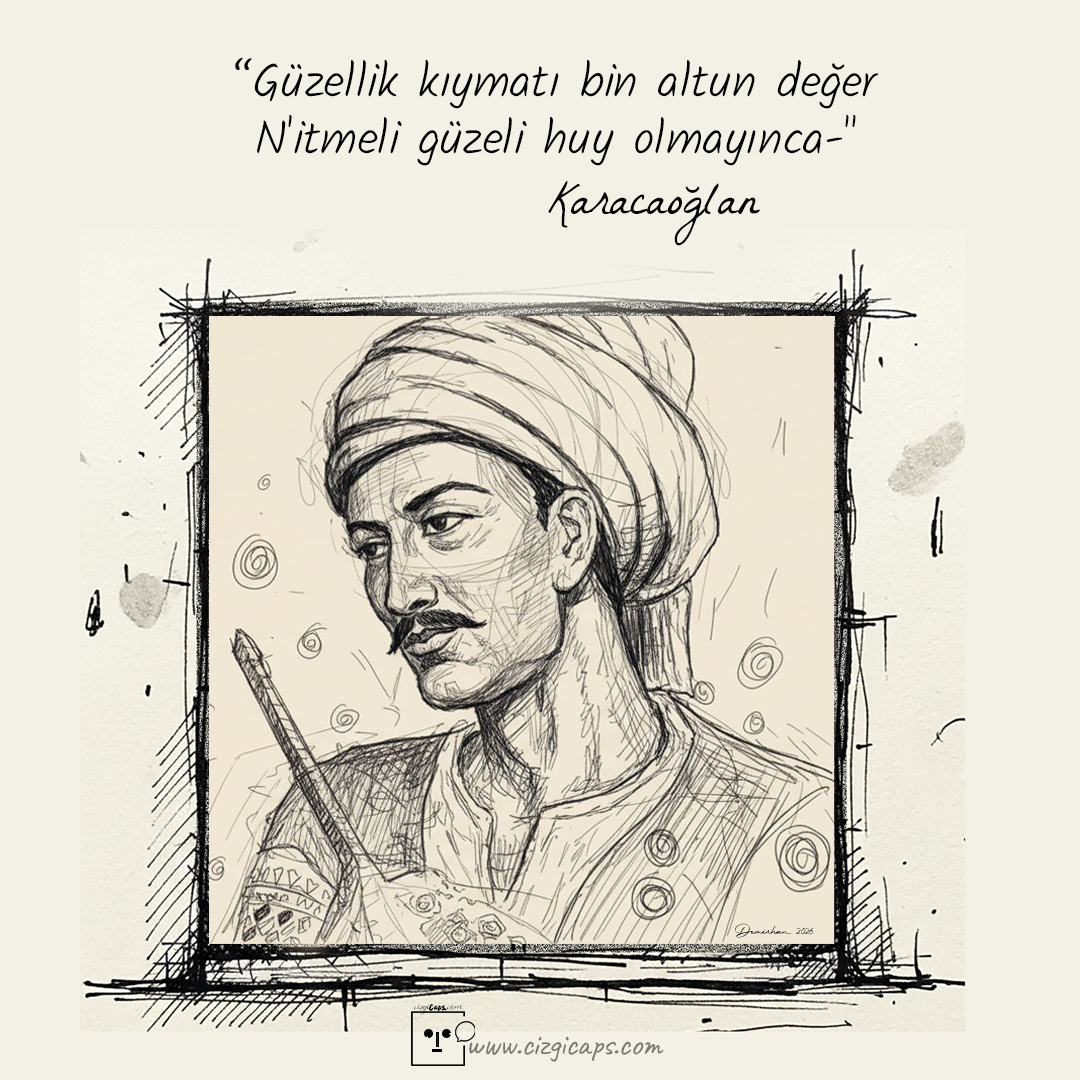 “Güzellik kıymatı bin altun değer
N'itmeli güzeli huy olmayınca-"
Karacaoğlan
Demirhan 2026
cizgiCaps.com
www.cizgicaps.com